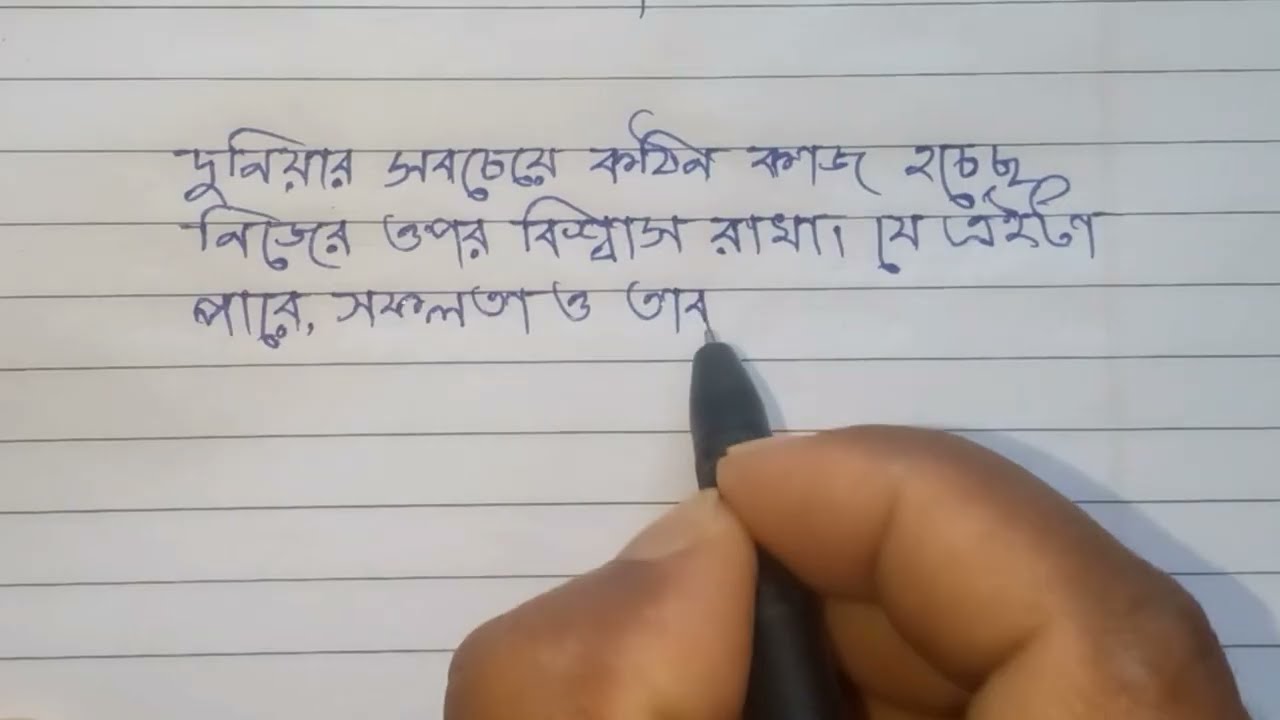 দুনিয়ার সবচেয়ে কঠিন কাজ হচ্ছে
নিজের ওপর বিশ্বাস রাখা। যে এইটা
পারে, সফলতা ও তাব